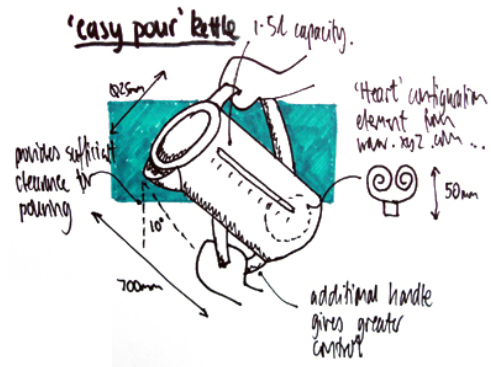 'easy pour' kettle
1.5l capacity.
Ø25mm
'Heart' configuration
element from
www.xyz.com ...
provides sufficient
clearance for
pouring
50mm
10°
700mm
additional handle
gives greater
control